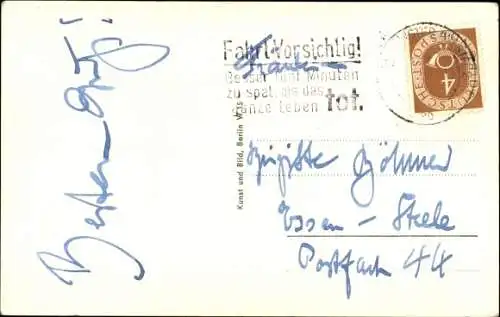 Besten Gruß!
Fahrt Vorsichtig!
Besser fünf Minuten
zu spät, als das
ganze Leben tot.
Fräulein
Brigitte Böhmer
Essen – Steele
Postfach 44
Kunst und Bild, Berlin W 35
DEUTSCHE POST
4